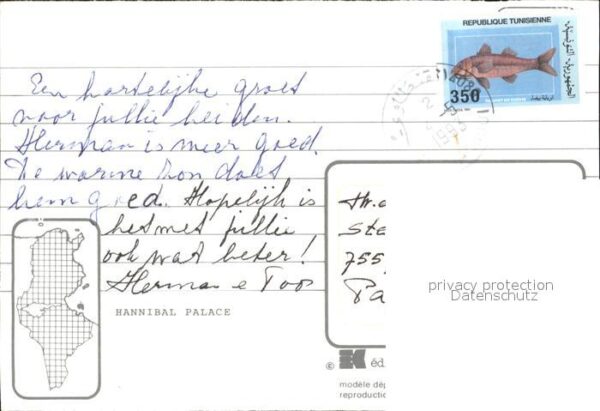 REPUBLIQUE TUNISIENNE
350
الجمهورية التونسية
Een hartelijke groet
voor jullie beiden.
Herman is weer goed.
De warme zon doet
hem goed. Hopelijk is
het met jullie
ook wat beter!
Herman e Toos
HANNIBAL PALACE
Ste
755
Pa
privacy protection
Datenschutz
© éd
modèle dép
reproductio